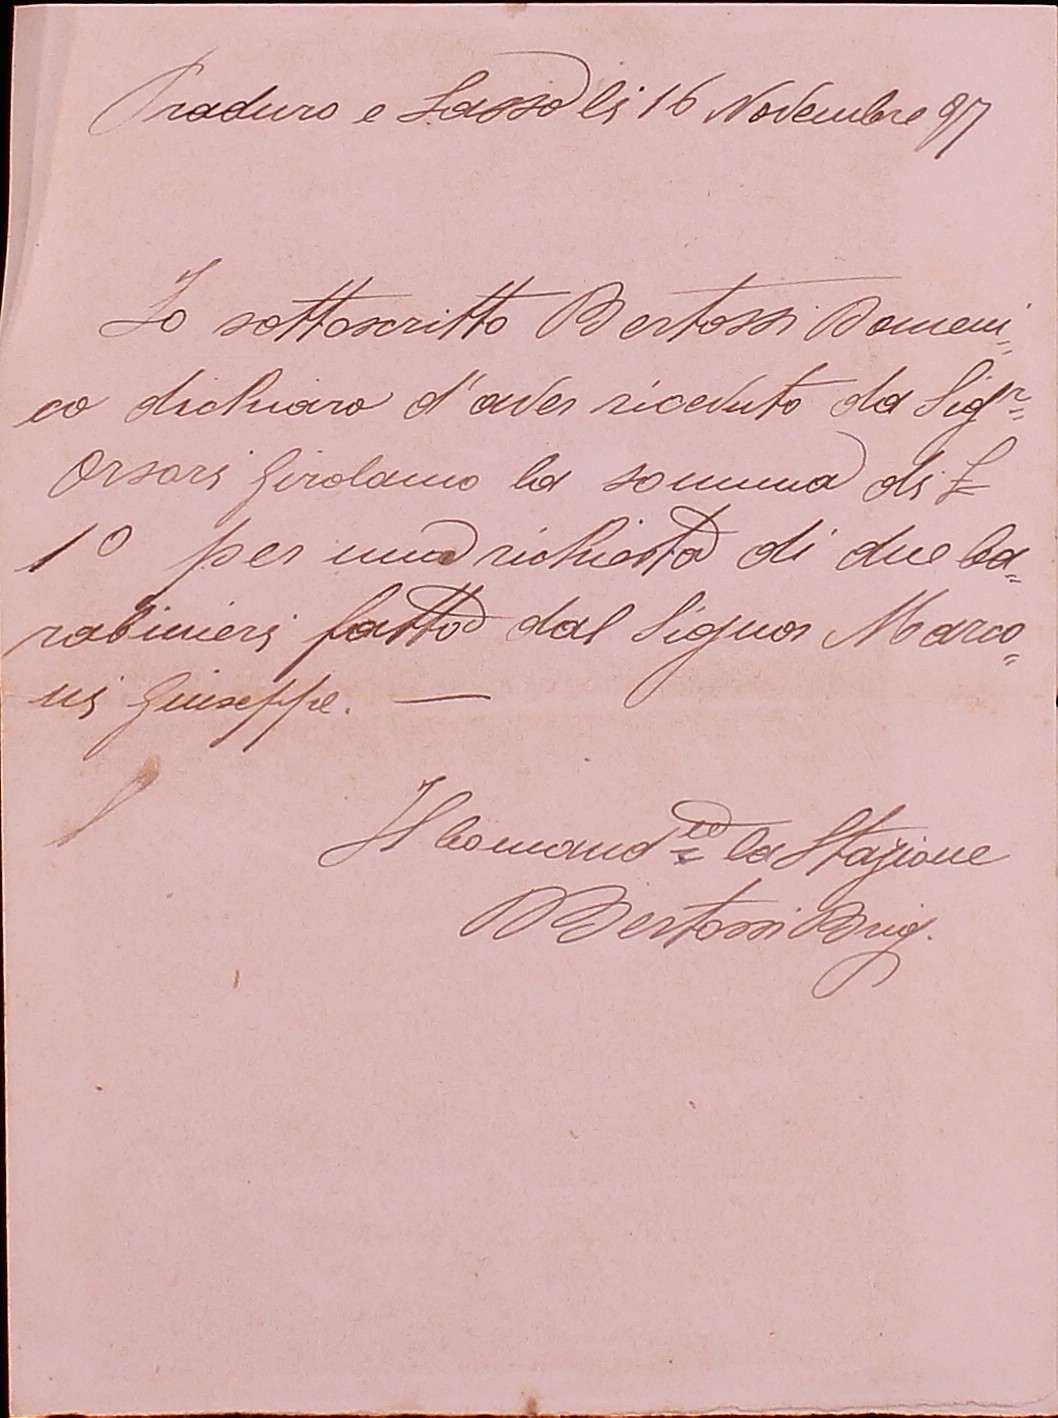 Praduro e Sasso li 16 Novembre 97
Io sottoscritto Bertossi Domeni=
co dichiaro d'aver ricevuto da Sigr=
Orsori Girolamo la somma di £
10 per una richiesta di due Ca=
rabinieri fatta dal Signor Marco=
ni Giuseppe. —
Il Comand la Stazione
Bertossi Brig.